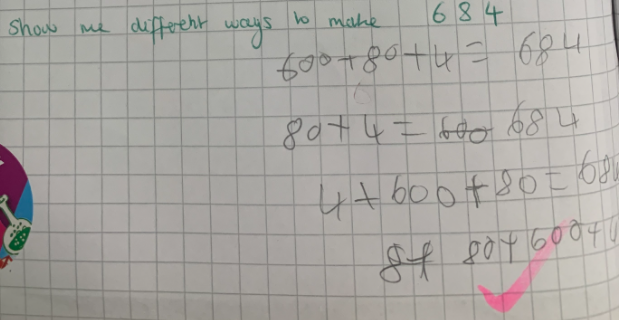 Show me different ways to make 684
600+80+4= 684
80+4= 600 684
4+600+80=68
84 80+600+